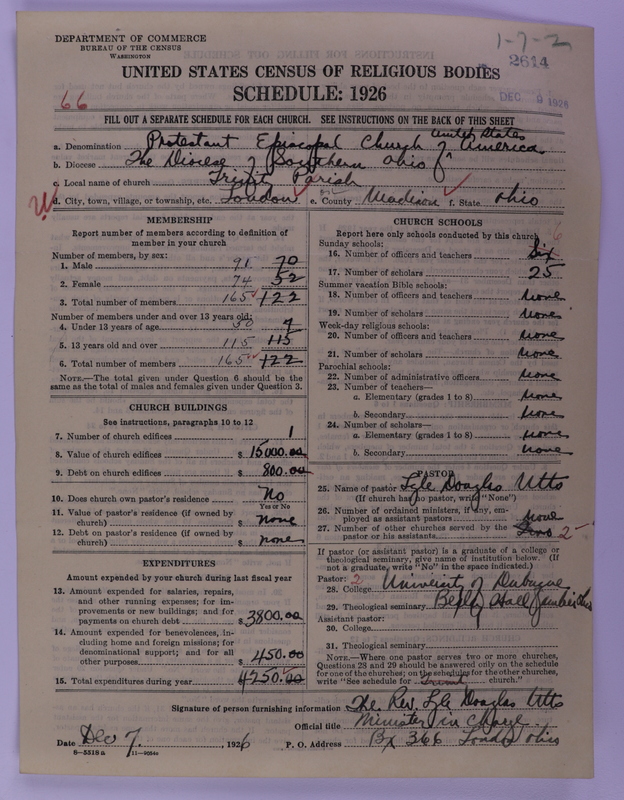 DEPARTMENT OF COMMERCE
BUREAU OF THE CENSUS
WASHINGTON
1-7-2
2614
DEC 9 1926
UNITED STATES CENSUS OF RELIGIOUS BODIES
SCHEDULE: 1926
66
FILL OUT A SEPARATE SCHEDULE FOR EACH CHURCH. SEE INSTRUCTIONS ON THE BACK OF THIS SHEET
a. Denomination Protestant Episcopal Church of United States America
b. Diocese The Diocese of Southern Ohio
c. Local name of church Trinity Parish
d. City, town, village, or township, etc. London e. County Madison f. State Ohio
MEMBERSHIP
Report number of members according to definition of member in your church
Number of members, by sex:
1. Male 91 70
2. Female 74 52
3. Total number of members 165 122
Number of members under and over 13 years old:
4. Under 13 years of age 50 7
5. 13 years old and over 115 115
6. Total number of members 165 122
NOTE.—The total given under Question 6 should be the same as the total of males and females given under Question 3.
CHURCH BUILDINGS
See instructions, paragraphs 10 to 12
7. Number of church edifices 1
8. Value of church edifices $15000.00
9. Debt on church edifices $800.00
10. Does church own pastor's residence No
Yes or No
11. Value of pastor's residence (if owned by church) $ none
12. Debt on pastor's residence (if owned by church) $ none
EXPENDITURES
Amount expended by your church during last fiscal year
13. Amount expended for salaries, repairs, and other running expenses; for improvements or new buildings; and for payments on church debt $3800.00
14. Amount expended for benevolences, including home and foreign missions; for denominational support; and for all other purposes $450.00
15. Total expenditures during year 4250.00
CHURCH SCHOOLS
Report here only schools conducted by this church
Sunday schools:
16. Number of officers and teachers Six 6
17. Number of scholars 25
Summer vacation Bible schools:
18. Number of officers and teachers None
19. Number of scholars None
Week-day religious schools:
20. Number of officers and teachers None
21. Number of scholars None
Parochial schools:
22. Number of administrative officers None
23. Number of teachers—
a. Elementary (grades 1 to 8) None
b. Secondary None
24. Number of scholars—
a. Elementary (grades 1 to 8) None
b. Secondary None
PASTOR
25. Name of pastor Lyle Douglas Utts
(If church has no pastor, write "None")
26. Number of ordained ministers, if any, employed as assistant pastors None
27. Number of other churches served by the pastor or his assistants 2
If pastor (or assistant pastor) is a graduate of a college or theological seminary, give name of institution below. (If not a graduate, write "No" in the space indicated.)
Pastor: 2
28. College University of Dubuque
29. Theological seminary Bexley Hall Gambier Ohio
Assistant pastor:
30. College
31. Theological seminary
NOTE.—Where one pastor serves two or more churches, Questions 28 and 29 should be answered only on the schedule for one of the churches; on the schedules for the other churches, write "See schedule for church."
Signature of person furnishing information The Rev. Lyle Douglas Utts
Official title Minister in Charge
Date Dec 7, 1926 P. O. Address Bx 366 London Ohio
8-5518 a 11-9054a